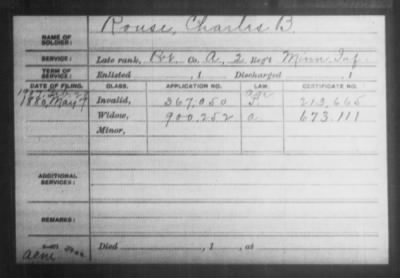 Rouse, Charles B.
NAME OF SOLDIER:
SERVICE: Late rank, Pvt. Co. A, 2 Reg't Minn. Inf.
TERM OF SERVICE: Enlisted , 1 Discharged , 1
DATE OF FILING. CLASS. APPLICATION NO. LAW. CERTIFICATE NO.
1880, May 7 Invalid, 367.050 213.665
Widow, 900.252 a 673.111
Minor,
ADDITIONAL SERVICES:
REMARKS:
Died , 1 , at